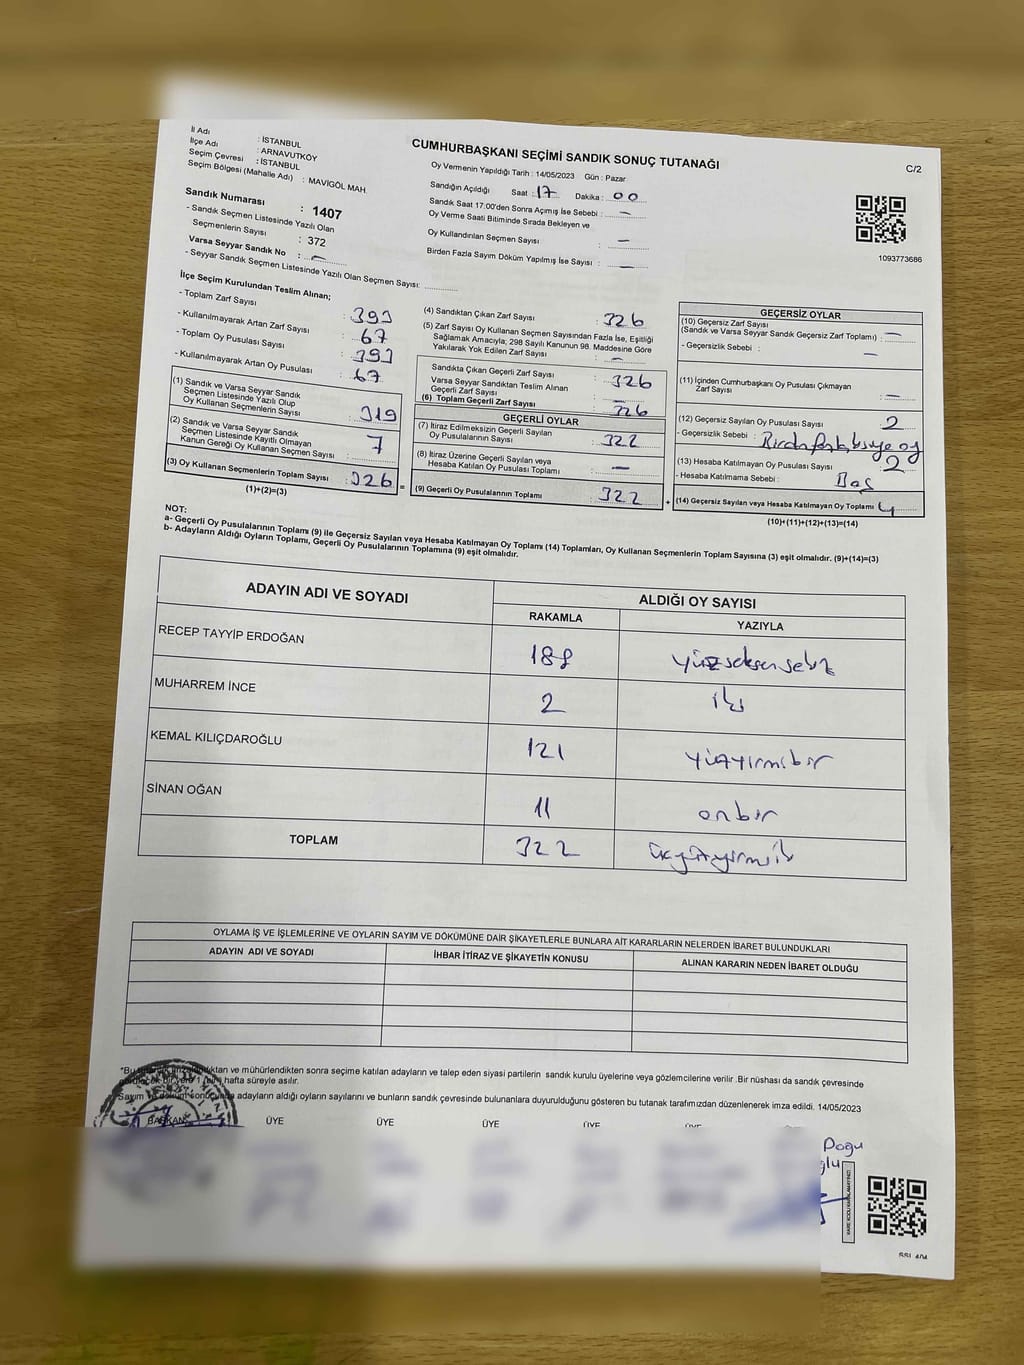 İl Adı : İSTANBUL
İlçe Adı : ARNAVUTKÖY
Seçim Çevresi : İSTANBUL
Seçim Bölgesi (Mahalle Adı) : MAVİGÖL MAH.
CUMHURBAŞKANI SEÇİMİ SANDIK SONUÇ TUTANAĞI
C/2
Oy Vermenin Yapıldığı Tarih : 14/05/2023 Gün : Pazar
Sandığın Açıldığı Saat : 17 Dakika : 00
Sandık Saat 17.00'den Sonra Açımış İse Sebebi : —
Oy Verme Saati Bitiminde Sırada Bekleyen ve
Oy Kullandırılan Seçmen Sayısı : —
Birden Fazla Sayım Döküm Yapılmış İse Sayısı : —
1093773686
Sandık Numarası : 1407
- Sandık Seçmen Listesinde Yazılı Olan
Seçmenlerin Sayısı : 372
Varsa Seyyar Sandık No : —
- Seyyar Sandık Seçmen Listesinde Yazılı Olan Seçmen Sayısı:
İlçe Seçim Kurulundan Teslim Alınan;
- Toplam Zarf Sayısı : 393
- Kullanılmayarak Artan Zarf Sayısı : 67
- Toplam Oy Pusulası Sayısı : 393
- Kullanılmayarak Artan Oy Pusulası : 67
(1) Sandık ve Varsa Seyyar Sandık
Seçmen Listesinde Yazılı Olup
Oy Kullanan Seçmenlerin Sayısı : 319
(2) Sandık ve Varsa Seyyar Sandık
Seçmen Listesinde Kayıtlı Olmayan
Kanun Gereği Oy Kullanan Seçmen Sayısı : 7
(3) Oy Kullanan Seçmenlerin Toplam Sayısı : 326
(1)+(2)=(3)
(4) Sandıktan Çıkan Zarf Sayısı : 326
(5) Zarf Sayısı Oy Kullanan Seçmen Sayısından Fazla İse, Eşitliği
Sağlamak Amacıyla; 298 Sayılı Kanunun 98. Maddesine Göre
Yakılarak Yok Edilen Zarf Sayısı : —
Sandıkta Çıkan Geçerli Zarf Sayısı : 326
Varsa Seyyar Sandıktan Teslim Alınan
Geçerli Zarf Sayısı : —
(6) Toplam Geçerli Zarf Sayısı : 326
GEÇERLİ OYLAR
(7) İtiraz Edilmeksizin Geçerli Sayılan
Oy Pusulalarının Sayısı : 322
(8) İtiraz Üzerine Geçerli Sayılan veya
Hesaba Katılan Oy Pusulası Toplamı : —
= (9) Geçerli Oy Pusulalarının Toplamı : 322
GEÇERSİZ OYLAR
(10) Geçersiz Zarf Sayısı
(Sandık ve Varsa Seyyar Sandık Geçersiz Zarf Toplamı) : —
- Geçersizlik Sebebi : —
(11) İçinden Cumhurbaşkanı Oy Pusulası Çıkmayan
Zarf Sayısı : —
(12) Geçersiz Sayılan Oy Pusulası Sayısı : 2
- Geçersizlik Sebebi : oy
(13) Hesaba Katılmayan Oy Pusulası Sayısı : 2
- Hesaba Katılmama Sebebi : Boş
+ (14) Geçersiz Sayılan veya Hesaba Katılmayan Oy Toplamı : 4
(10)+(11)+(12)+(13)=(14)
NOT:
a- Geçerli Oy Pusulalarının Toplamı (9) ile Geçersiz Sayılan veya Hesaba Katılmayan Oy Toplamı (14) Toplamları, Oy Kullanan Seçmenlerin Toplam Sayısına (3) eşit olmalıdır. (9)+(14)=(3)
b- Adayların Aldığı Oyların Toplamı, Geçerli Oy Pusulalarının Toplamına (9) eşit olmalıdır.
ADAYIN ADI VE SOYADI
ALDIĞI OY SAYISI
RAKAMLA YAZIYLA
RECEP TAYYİP ERDOĞAN 188 yüzseksensekiz
MUHARREM İNCE 2 iki
KEMAL KILIÇDAROĞLU 121 yüzyirmibir
SİNAN OĞAN 11 onbir
TOPLAM 322 üçyüzyirmiiki
OYLAMA İŞ VE İŞLEMLERİNE VE OYLARIN SAYIM VE DÖKÜMÜNE DAİR ŞİKAYETLERLE BUNLARA AİT KARARLARIN NELERDEN İBARET BULUNDUKLARI
ADAYIN ADI VE SOYADI İHBAR İTİRAZ VE ŞİKAYETİN KONUSU ALINAN KARARIN NEDEN İBARET OLDUĞU
"Bu tutanak imzalandıktan ve mühürlendikten sonra seçime katılan adayların ve talep eden siyasi partilerin sandık kurulu üyelerine veya gözlemcilerine verilir .Bir nüshası da sandık çevresinde
görülecek bir yere 1 (bir) hafta süreyle asılır.
Sayım ve döküm sonucunda adayların aldığı oyların sayılarını ve bunların sandık çevresinde bulunanlara duyurulduğunu gösteren bu tutanak tarafımızdan düzenlenerek imza edildi. 14/05/2023
BAŞKAN ÜYE ÜYE ÜYE ÜYE ÜYE
Doğu
ğlu